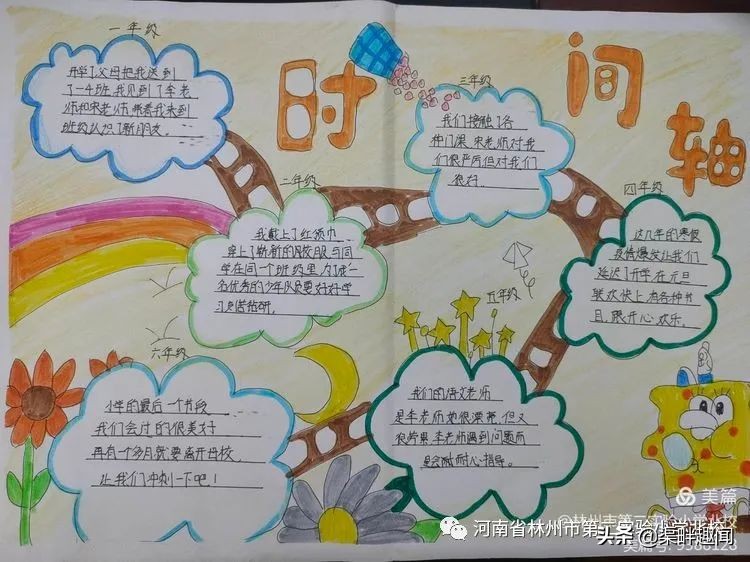 时间轴
一年级
开学了父母把我送到
了一4班,我见到了李老
师和宋老师,带着我来到
班级认识了新朋友。
二年级
我戴上了红领巾
穿上了崭新的校服与同
学在同一个班级里,为了做一
名优秀的少年队员要好好学
习,刻苦钻研。
三年级
我们接触了各
种门课,宋老师对我
们很严厉但对我们
很好。
四年级
这几年的寒假
疫情爆发让我们
延迟了开学,在元旦
联欢快上有各种节
目,跟开心欢乐。
五年级
我们的语文老师
是李老师她很漂亮,但又
很 李老师遇到问题而
是会耐耐心指导。
六年级
小学的最后一个节段
我们会过的很美好
再有一个多月就要离开母校,
让我们冲刺一下吧!
美篇
@林州市第二实验小学北校
河南省林州市第二实验小学北校
头条 @渠畔趣闻
美篇号: 9388128